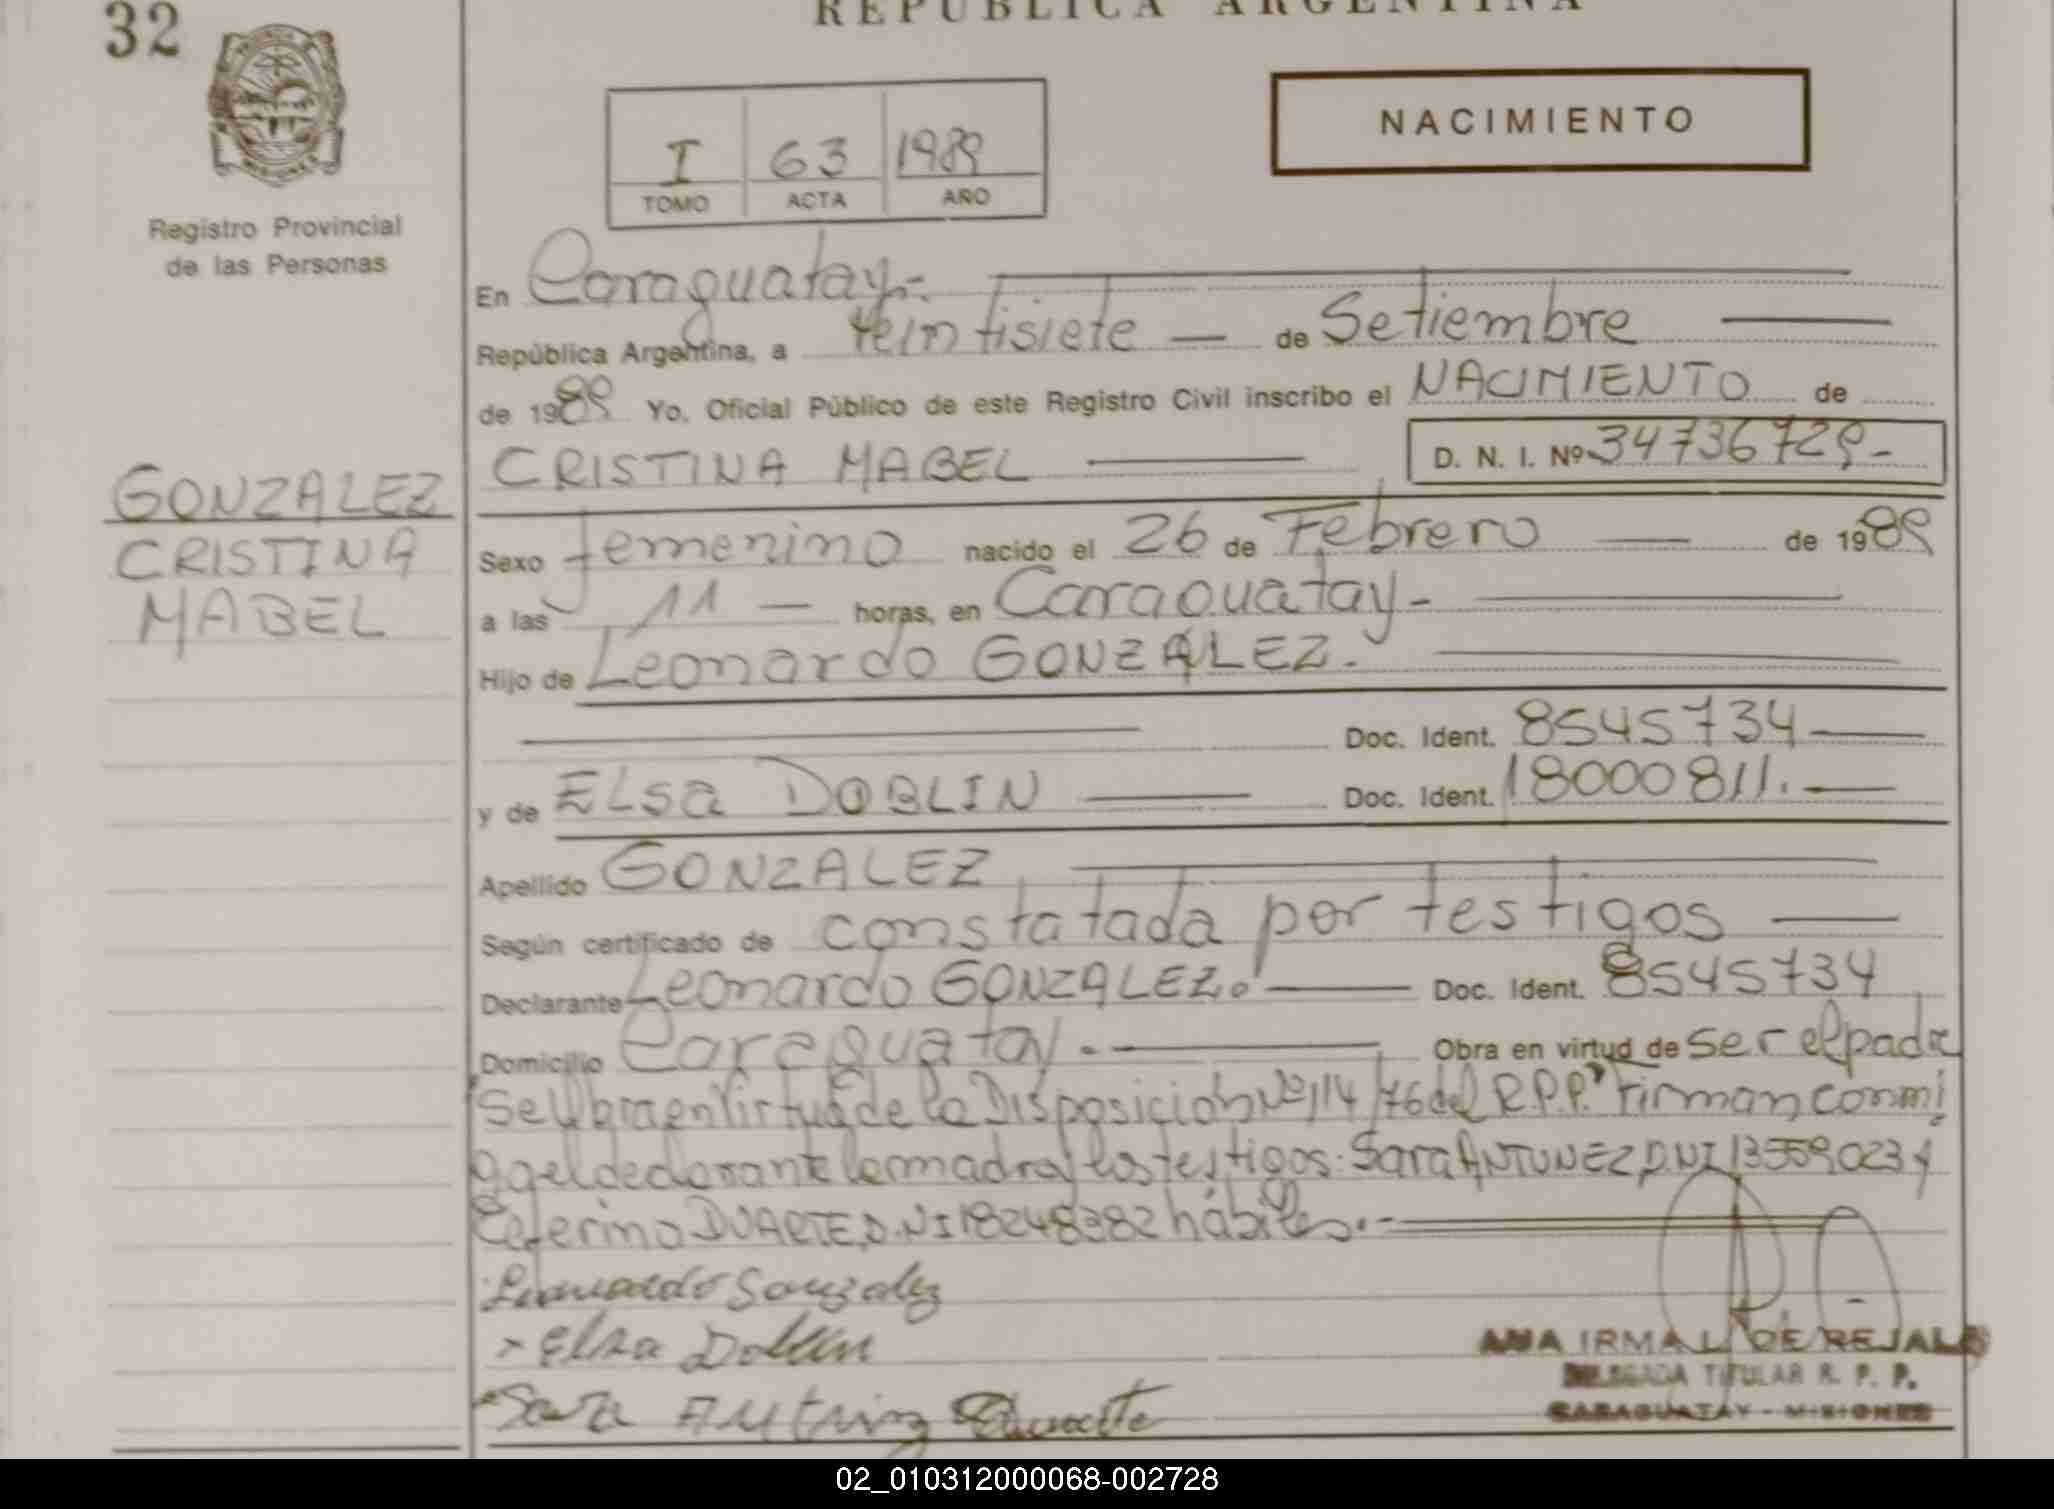 32
REPUBLICA ARGENTINA
NACIMIENTO
I 63 1989
TOMO ACTA AÑO
Registro Provincial
de las Personas
GONZALEZ
CRISTINA
MABEL
En Caraguatay.-
República Argentina, a veintisiete — de Setiembre —
de 1989 Yo, Oficial Público de este Registro Civil inscribo el NACIMIENTO de
CRISTINA MABEL — D. N. I. Nº 34736729-
Sexo femenino nacido el 26 de Febrero — de 1989
a las 11 — horas, en Caraguatay-
Hijo de Leonardo GONZALEZ.
Doc. Ident. 8545734—
y de ELSA DOBLIN — Doc. Ident. 18000811.—
Apellido GONZALEZ
Según certificado de constatada por testigos —
Declarante Leonardo GONZALEZ. — Doc. Ident. 8545734
Domicilio Caraguatay.— Obra en virtud de ser el padre
Se labra en Virtud de la Disposición Nº 114/76 del R.P.P. Firman conmi
go el declarante la madre y los testigos: Sara ANTUNEZ D.NI 13559023 y
Ceferino DUARTE, D.NI 18248382 hábiles.-
Leonardo Gonzalez
Elsa Doblin
Sara Duarte
ANA IRMA L. DE BEJAL
DELEGADA TITULAR R. P. P.
CARAGUATAY - MISIONES
02_010312000068-002728